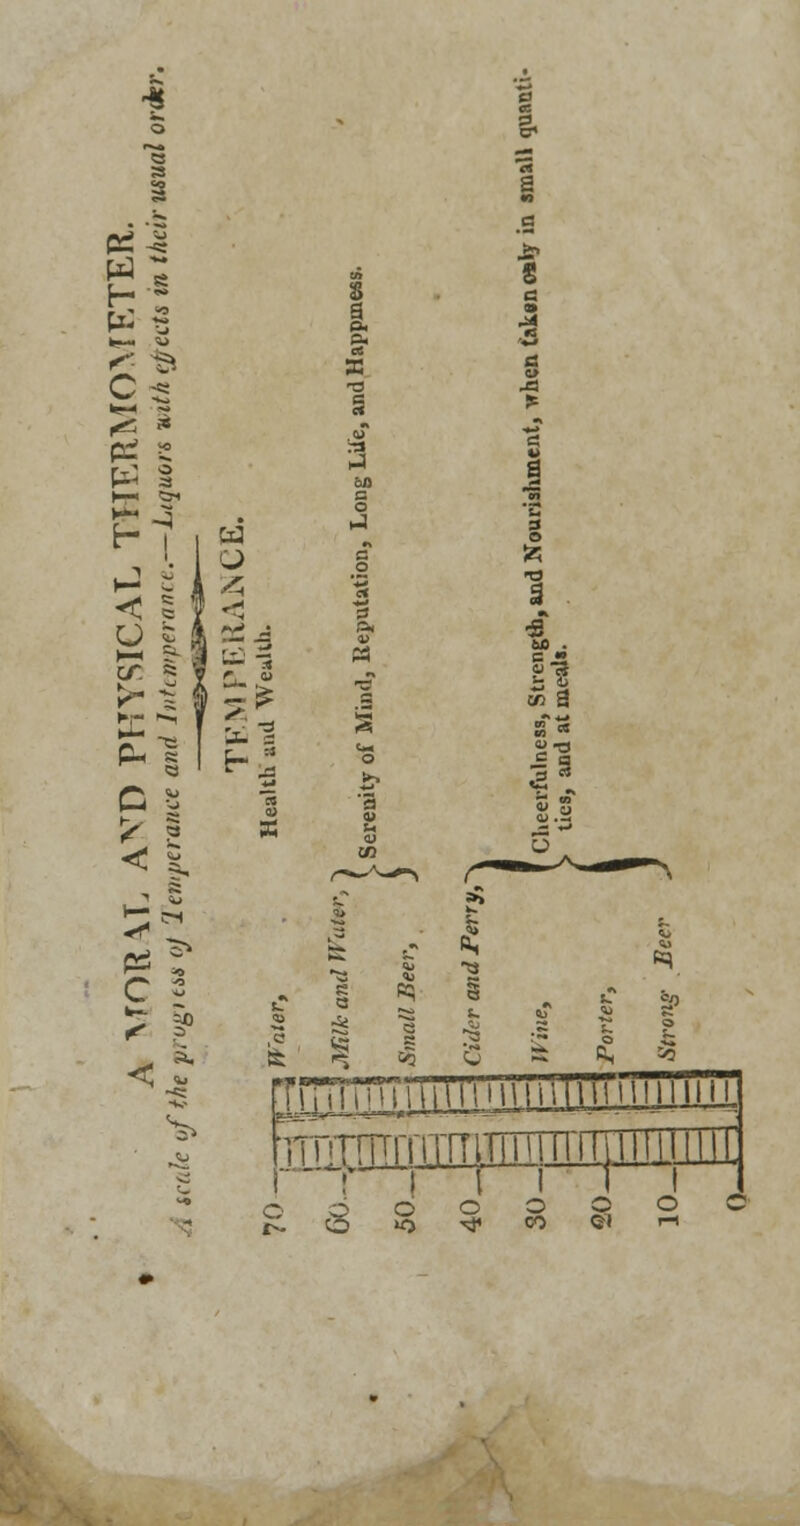 A MORAL AND PHYSICAL THERMOMETER.
A scale of the progress of Temperance and Intemperance.—Liquors with effects in their usual order.
TEMPERANCE.
70 Water, Health and Wealth.
60 Milk and Water, } Serenity of Mind, Reputation, Long Life, and Happiness.
50 Small Beer,
40 Cider and Perry, } Cheerfulness, Strength, and Nourishment, when taken only in small quanti-
30 Wine, ties, and at meals.
20 Porter,
10 Strong Beer
0